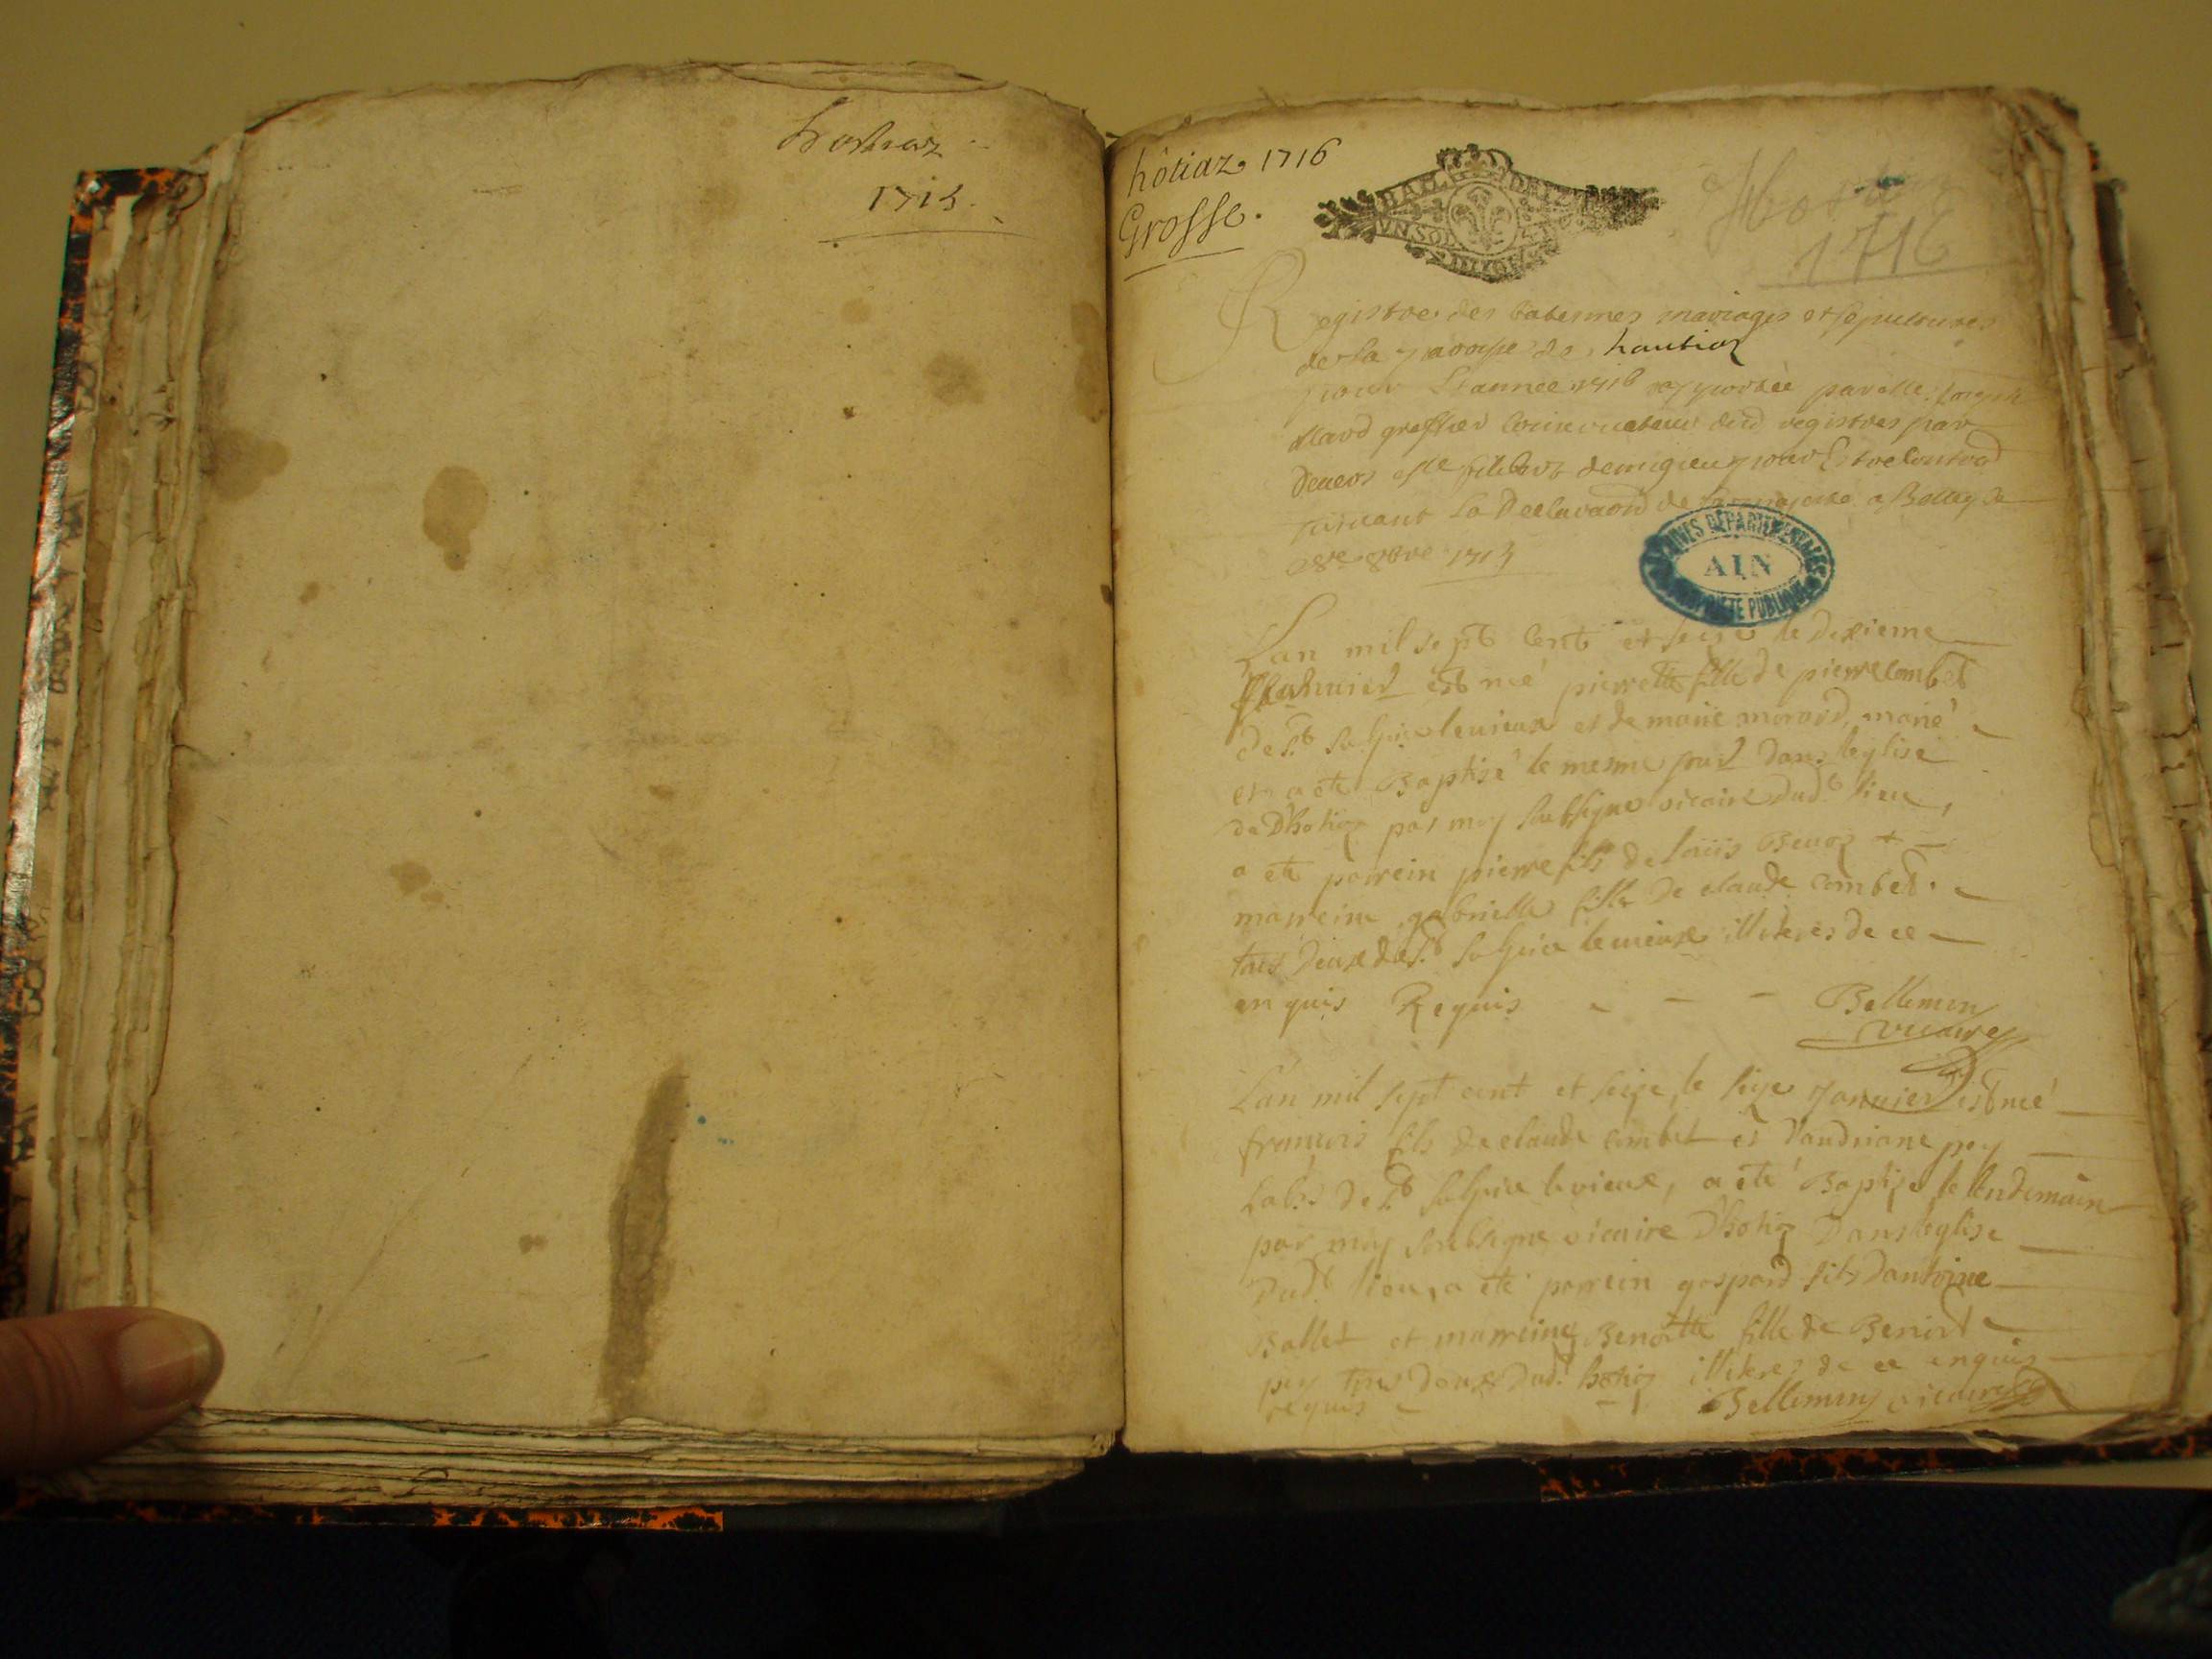 1715
hôtiaz 1716
Grosse.
UN SOL
1716
Registre des batesmes mariages et sepultures
de la paroisse de hautiaz
pour L'année 1716
Mard greffier desd registres par
suivant la Declaraon de sa majesté a Belley le
1715
ARCHIVES DÉPARTEMENTALES
AIN
PROPRIÉTÉ PUBLIQUE
Lan mil sept Cent et seize le dexieme
est neé pierrette fille de pierre Combet
de st Sulpice levieux et de marie morard marié
et a eté Baptisé le mesme jour Dans leglise
de Dhotiaz par moy soubsigne vicaire dudt lieu,
a eté parrein pierre fils de Louis
marreine gabrielle fille de claude Combet.
tous Deux de st Sulpice levieux illiteres de ce
enquis Requis Bellemin
vicaire
L'an mil sept cent et seize, le seize Janvier est neé
françois fils de claude Combet et Dandriane pey
de st Sulpice levieux, a eté Baptise le lendemain
par moy soubsigne vicaire Dhotiaz Dans leglise
Dudt lieu, a eté parrein gaspard fils Dantoine
Ballet et marreine Benoitte fille de Benoist
pey tous Deux Dudt hotiaz illiteres de ce enquis
requis Bellemin vicaire